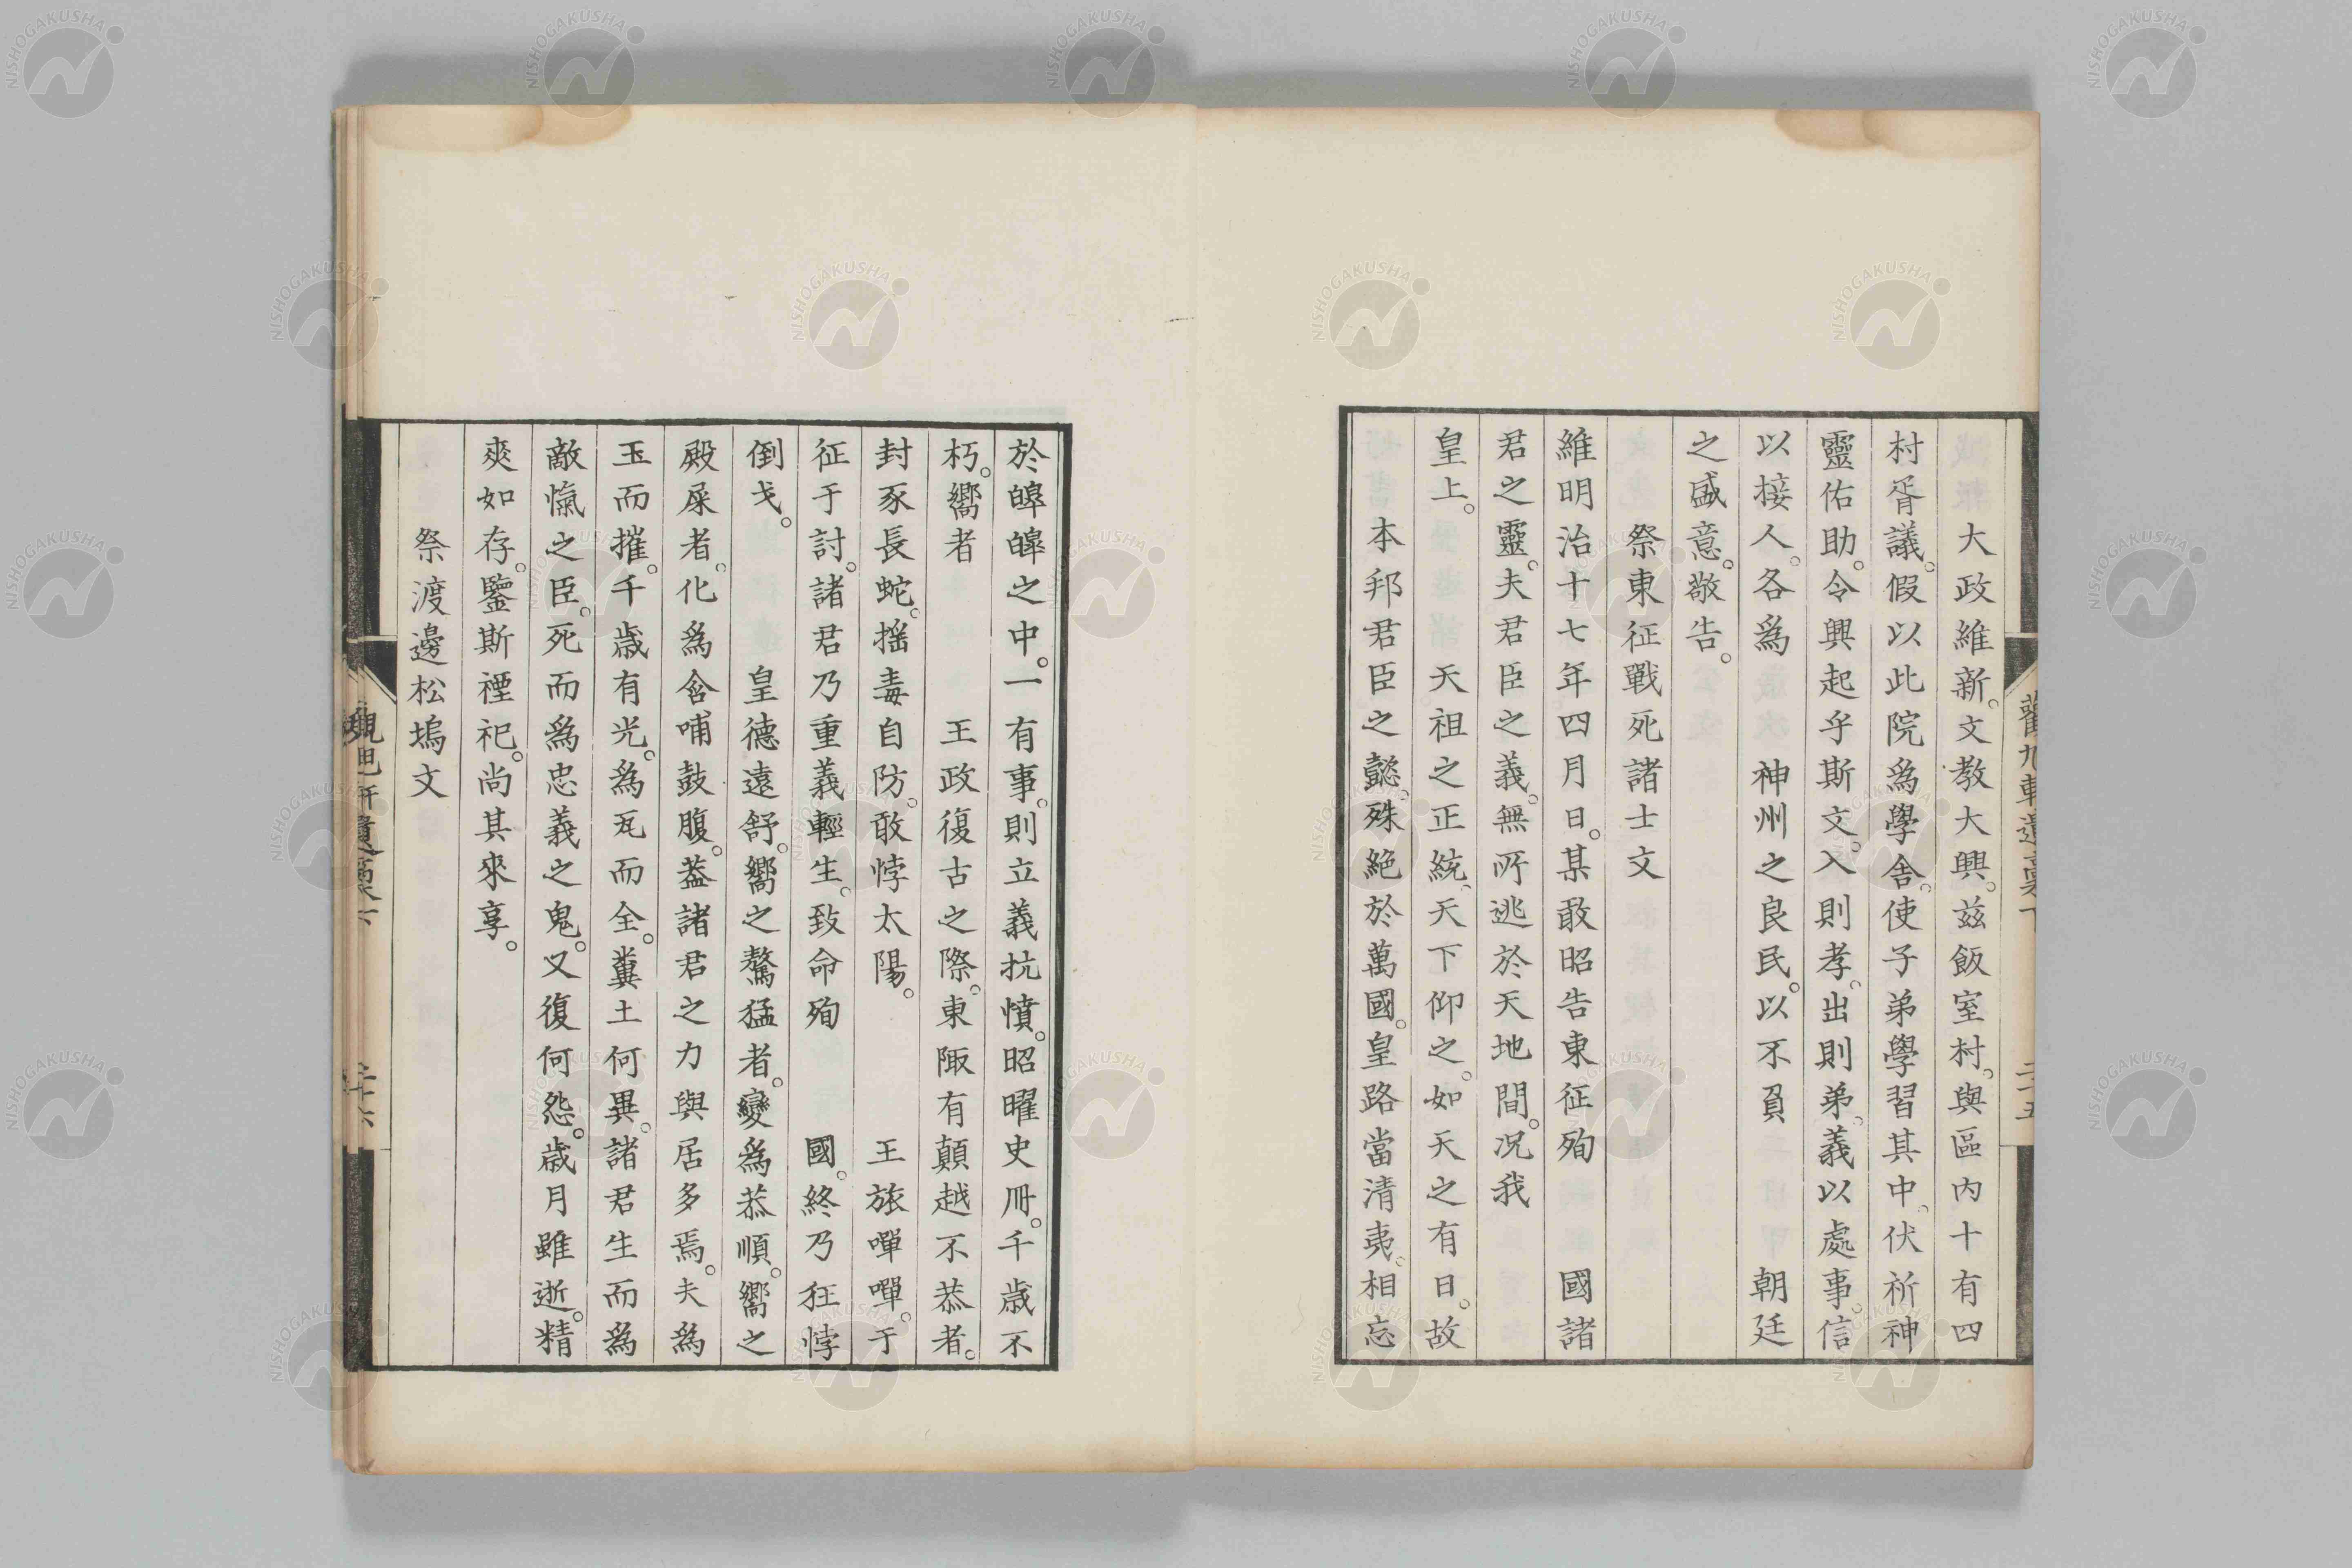 大政維新。文教大興。茲飯室村。與區内十有四
村胥議。假以此院爲學舎。使子弟學習其中。伏祈神
靈佑助。令興起乎斯文。入則孝。出則弟。義以處事。信
以接人。各爲　神州之良民。以不負　朝廷
之盛意。敬告。
祭東征戰死諸士文
維明治十七年四月日。某敢昭告東征殉　國諸
君之靈。夫君臣之義。無所逃於天地間。况我
皇上。　天祖之正統。天下仰之。如天之有日。故
本邦君臣之懿。殊絶於萬國。皇路當清夷。相忘
於皥皥之中。一有事。則立義抗憤。昭曜史册。千歳不
朽。嚮者　王政復古之際。東陬有顛越不恭者。
封豕長蛇。揺毒自防。敢悖太陽。　王旅嘽嘽。于
征于討。諸君乃重義輕生。致命殉　國。終乃狂悖
倒戈。　皇德遠舒。嚮之驁猛者。變爲恭順。嚮之
殿屎者。化爲含哺鼓腹。葢諸君之力與居多焉。夫爲
玉而摧。千歳有光。爲瓦而全。糞土何異。諸君生而爲
敵愾之臣。死而爲忠義之鬼。又復何怨。歳月雖逝。精
爽如存。鑒斯禋祀。尚其來享。
祭渡邊松塢文
NISHOGAKUSHA